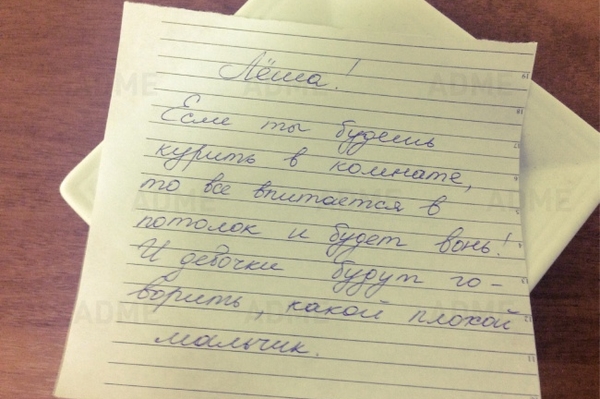 Лёша!
Если ты будешь
курить в комнате,
то все впитается в
потолок и будет вонь!
И девочки будут го-
ворить, какой плохой
мальчик.
ADME
ADME
ADME
ADME
ADME
ADME
ADME
ADME
ADME